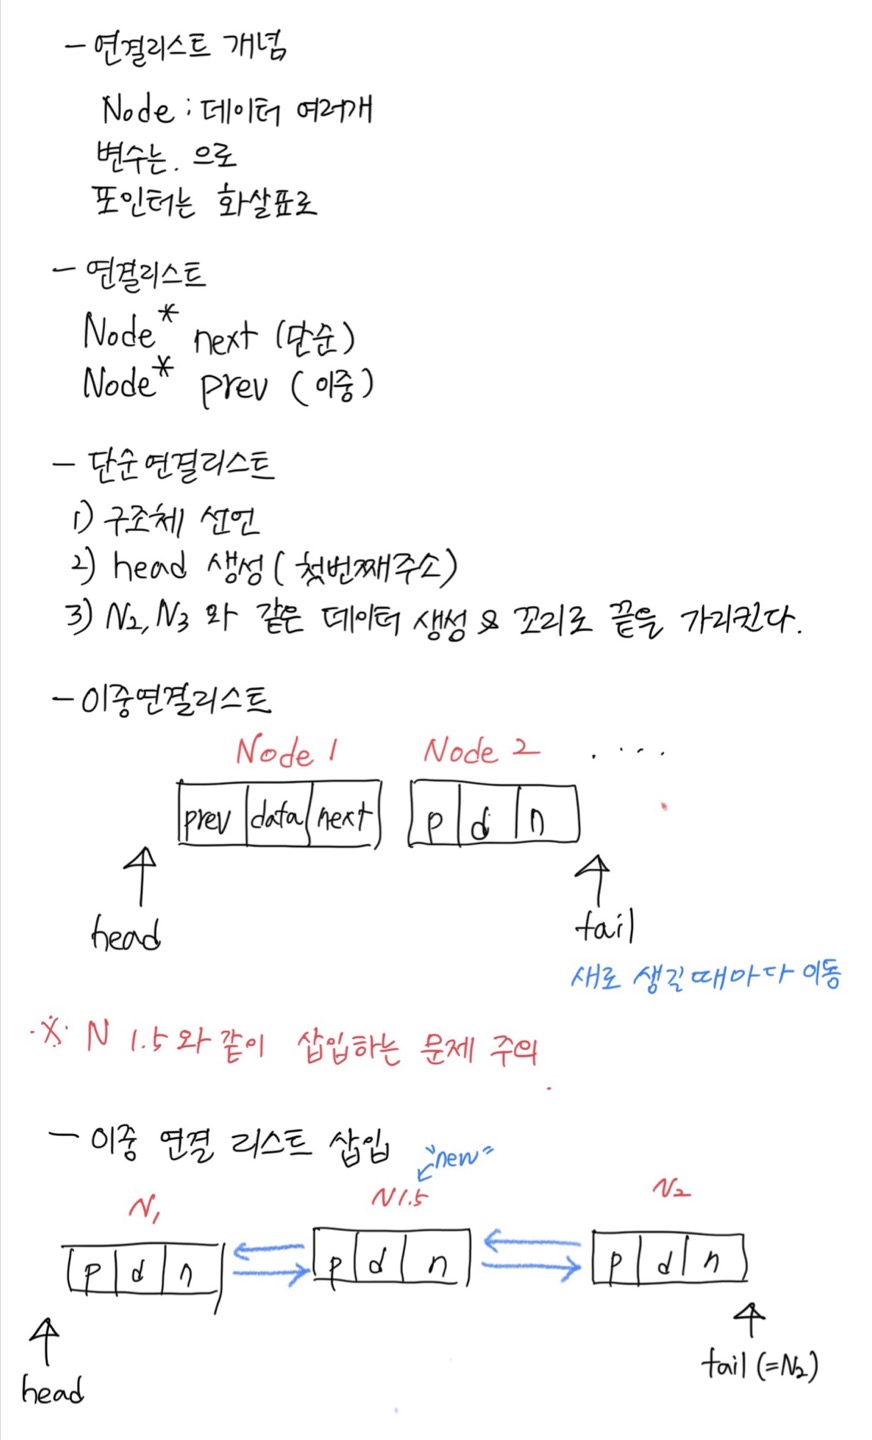 - 연결리스트 개념
Node : 데이터 여러개
변수는 . 으로
포인터는 화살표로
- 연결리스트
Node* next (단순)
Node* prev (이중)
- 단순연결리스트
1) 구조체 선언
2) head 생성 (첫번째주소)
3) N2, N3 와 같은 데이터 생성 & 꼬리로 끝을 가리킨다.
- 이중연결리스트
Node 1 Node 2 ....
prev data next p d n
head tail
새로 생길때마다 이동
※ N 1.5와 같이 삽입하는 문제 주의
- 이중 연결 리스트 삽입
"new"
N1 N1.5 N2
p d n p d n p d n
head tail (=N2)